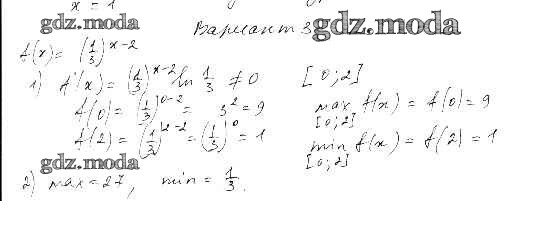 x = 1
gdz.moda
Вариант 3
gdz.moda
f(x) = (1/3)^(x-2)
1) f'(x) = (1/3)^(x-2) ln 1/3 ≠ 0 [0;2]
f(0) = (1/3)^(0-2) = 3^2 = 9 max f(x) = f(0) = 9
[0;2]
f(2) = (1/3)^(2-2) = (1/3)^0 = 1 min f(x) = f(2) = 1
[0;2]
gdz.moda
2) max = 27, min = 1/3.